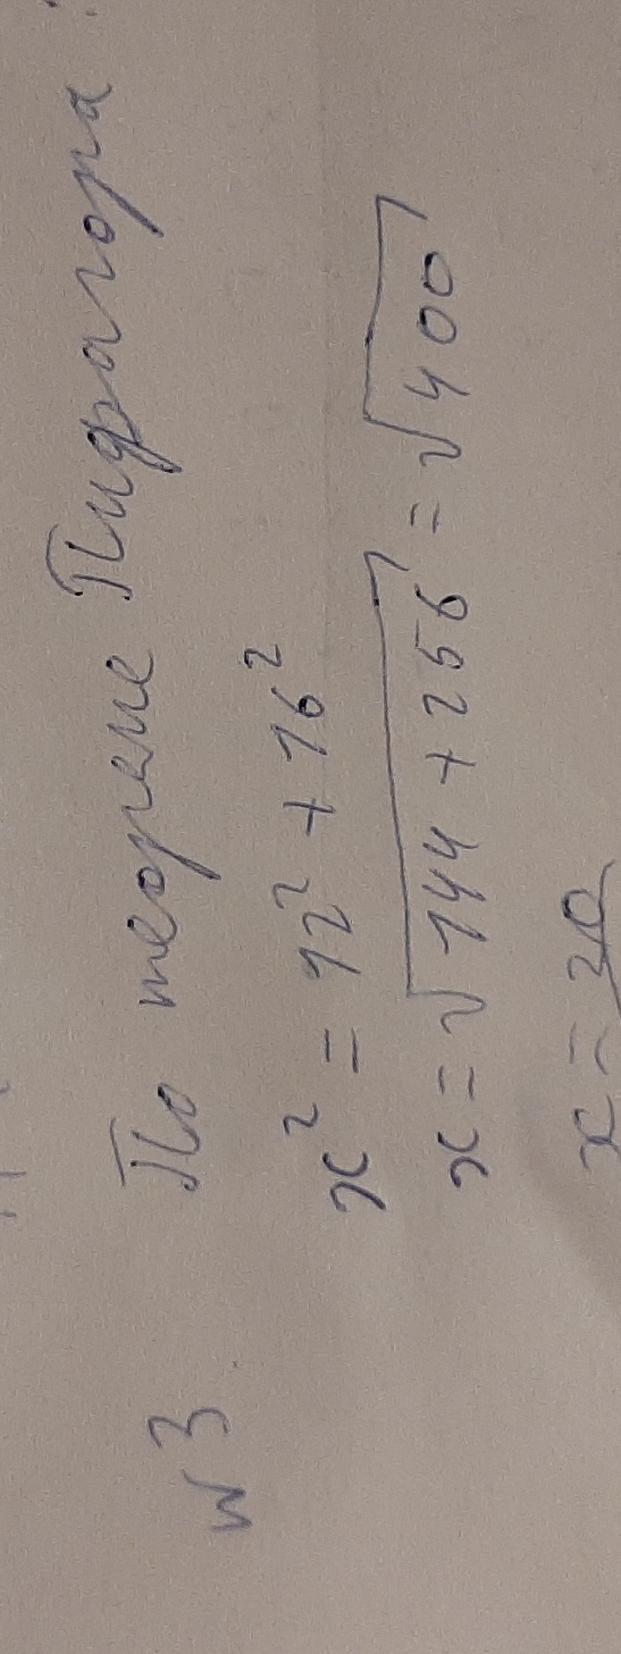 №3 По теореме Пифагора:
x² = 12² + 16²
x = √144 + 256 = √400
x = 20